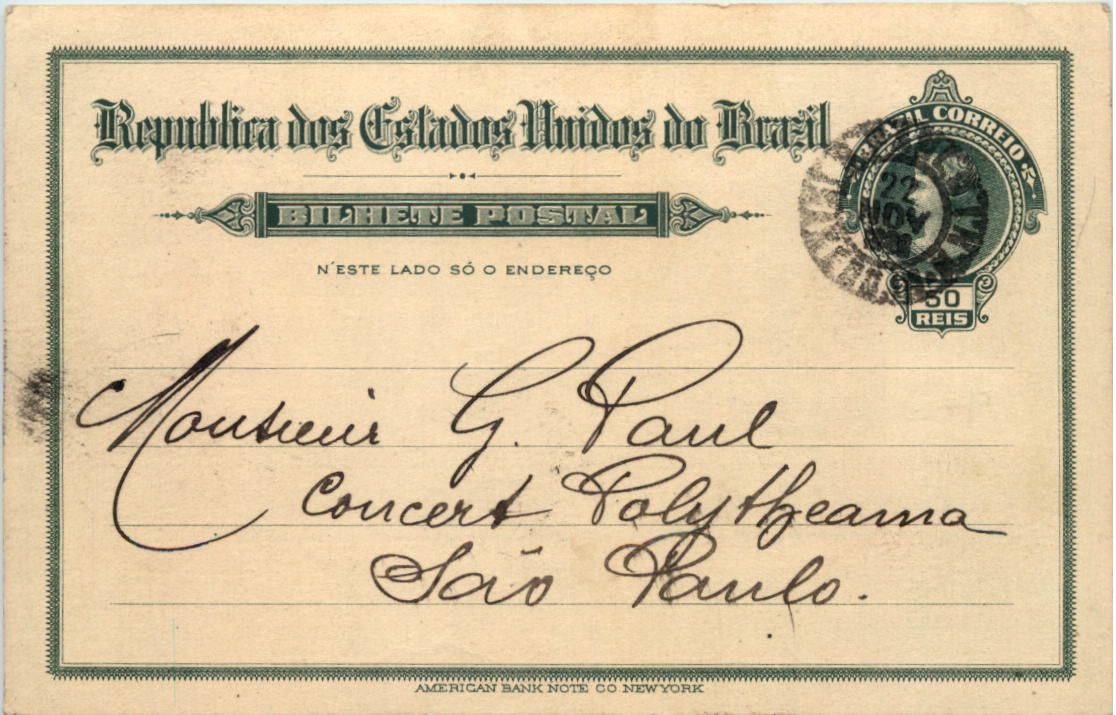 Republica dos Estados Unidos do Brazil
BILHETE POSTAL
N'ESTE LADO SÓ O ENDEREÇO
BRAZIL CORREIO
22
NOV
50
REIS
Monsieur G. Paul
Concert Polytheama
São Paulo.
AMERICAN BANK NOTE CO NEW YORK